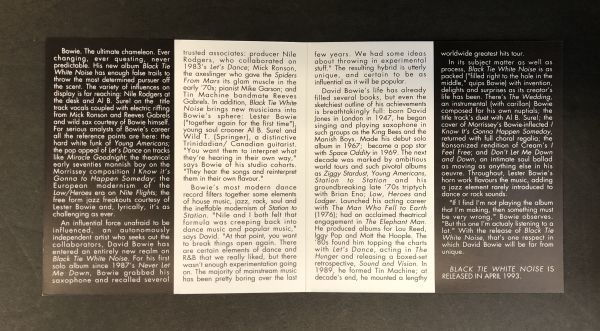 Bowie. The ultimate chameleon. Ever
changing, ever questing, never
predictable. His new album Black Tie
White Noise has enough false trails to
throw the most determined pursuer off
the scent. The variety of influences on
display is far reaching: Nile Rodgers at
the desk and Al B. Sure! on the title
track vocals coupled with electric riffing
from Mick Ronson and Reeves Gabrels
and wild sax courtesy of Bowie himself.
For serious analysts of Bowie's career
all the reference points are here: the
hard white funk of Young Americans;
the pop appeal of Let's Dance on tracks
like Miracle Goodnight; the theatrical
early seventies mannish boy on the
Morrissey composition I Know it's
Gonna to Happen Someday; the
European modernism of the
Low/Heroes era on Nite Flights; the
free form jazz freakouts courtesy of
Lester Bowie and, lyrically, it's as
challenging as ever.
An influential force unafraid to be
influenced, an autonomously
independent artist who seeks out the
collaborators, David Bowie has
entered an entirely new realm on
Black Tie White Noise. For his first
solo album since 1987's Never Let
Me Down, Bowie grabbed his
saxophone and recalled several
trusted associates: producer Nile
Rodgers, who collaborated on
1983's Let's Dance; Mick Ronson,
the axeslinger who gave the Spiders
From Mars its glam muscle in the
early '70s; pianist Mike Garson; and
Tin Machine bandmate Reeves
Gabrels. In addition, Black Tie White
Noise brings new musicians into
Bowie's sphere: Lester Bowie
["together again for the first time"],
young soul crooner Al B. Sure! and
Wild T. (Springer), a distinctive
Trinidadian/ Canadian guitarist.
"You want them to interpret what
they're hearing in their own way,"
says Bowie of his studio cohorts.
"They hear the songs and reinterpret
them in their own flavour."
Bowie's most modern dance
record filters together some elements
of house music, jazz, rock, soul and
the ineffable modernism of Station to
Station. "Nile and I both felt that
formula was creeping back into
dance music and popular music,"
says David. "At that point, you want
to break things open again. There
are certain elements of dance and
R&B that we really liked, but there
wasn't enough experimentation going
on. The majority of mainstream music
has been pretty boring over the last
few years. We had some ideas
about throwing in experimental
stuff." The resulting hybrid is utterly
unique, and certain to be as
influential as it will be popular.
David Bowie's life has already
filled several books, but even the
sketchiest outline of his achievements
is breathtakingly full: born David
Jones in London in 1947, he began
singing and playing saxophone in
such groups as the King Bees and the
Manish Boys. Made his debut solo
album in 1967; became a pop star
with Space Oddity in 1969. The next
decade was marked by ambitious
world tours and such pivotal albums
as Ziggy Stardust, Young Americans,
Station to Station and his
groundbreaking late '70s triptych
with Brian Eno, Low, Heroes and
Lodger. Launched his acting career
with The Man Who Fell to Earth
(1976); had an acclaimed theatrical
engagement in The Elephant Man.
He produced albums for Lou Reed,
Iggy Pop and Mott the Hoople. The
'80s found him topping the charts
with Let's Dance, acting in The
Hunger and releasing a boxed-set
retrospective, Sound and Vision. In
1989, he formed Tin Machine; at
decade's end, he mounted a lengthy
worldwide greatest hits tour.
In its subject matter as well as
process Black Tie White Noise is as
packed ("filled right to the hole in the
middle," quips Bowie) with invention,
delights and surprises as its creator's
life has been. There's The Wedding,
an instrumental (with carillon) Bowie
composed for his own nuptials; the
title track's duet with Al B. Sure!; the
cover of Morrissey's Bowie-inflected I
Know It's Gonna Happen Someday,
returned with full choral regalia; the
Ronsonized rendition of Cream's I
Feel Free; and Don't Let Me Down
and Down, an intimate soul ballad
as moving as anything else in his
oeuvre. Throughout, Lester Bowie's
horn work flavours the music, adding
a jazz element rarely introduced to
dance or rock sounds.
"If I find I'm not playing the album
that I'm making, then something must
be very wrong," Bowie observes.
"But this one I'm actually listening to a
lot." With the release of Black Tie
White Noise, that's one respect in
which David Bowie will be far from
unique.
BLACK TIE WHITE NOISE IS
RELEASED IN APRIL 1993.